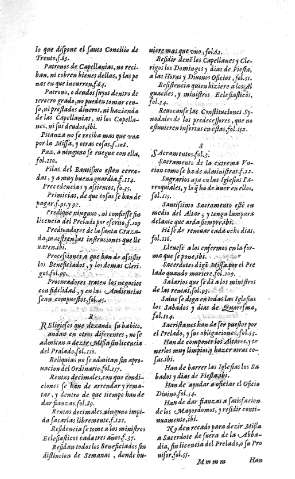 lo que dispone el santo Concilio de
Trento, f.45.
Patronos de Capellanias, no reciban
, ni cobren bienes dellas, y las penas
en que incurren, f.44.
Patrono, o deudos suyos dentro de
tercero grado, no pueden tomar censo
, ni prestados dineros, ni hazienda
de las Capellanias, ni los Capellanes
, ni sus deudos, ibi.
Pitança no se reciba mas que vna
por la Missa, y otras cosas, f.108.
Paz, a ninguno se ruegue con ella,
fol.110.
Pilas del Bautismo esten cerradas
, y a muy buena guarda, f.114.
Precedencias y assientos, f.93.
Primicias, de que cosas se han de
pagar, f.91.y 92.
Predique ninguno, ni confiesse sin
licencia del Prelado
Predicadores de la santa Cruzada
, instrucciones que lleuaren
, ibi.
Processiones, a que han de assistir
los Beneficiados, y los demas Clerigos
, fol.95.
Procuradores traten los negocios
con fidelidad, y en las Audiencias
sean compuestos, fol.45.
R
Religiosos que dexando su habito,
andan en otros diferentes, no se
admitan a dezir Missa sin licencia
del Prelado,
Reliquias no se admitan sin aprouacion
del Ordinario, fol.117.
Rentas decimales, con que condiciones
se han de arrendar y rematar
, y dentro de que tiempo han de
dar fianças, fol.59.
Rentas decimales, ninguno impida
sacarlas libremente, f.101.
Residencia se tome a los ministros
Eclesiasticos cada tres años, f.37.
Residan todos los Beneficiados sin
distincion de Semanas, donde huuiere
mas que vno, fol.61.
Residir deuen los Capellanes y Clerigos
los Domingos y dias de Fiesta,
a las Horas y Diuinos Oficios, fol.51.
Resistencia quien hiziere a los
alguaziles, y ministros Eclesiasticos,
fol.24.
Reuocanse las Constituciones Synodales
de los predecessores, que no
estuuieren insertas en estas, fol.122.
S
Sacramentos, fol.5.
Sacramento de la extrema Vncion
como se ha de administrar, f.12.
Sagrarios aya en las Iglesias Parroquiales
, y la que ha de auer en ellos,
fol.115.
Santissimo Sacramento esté en
medio del Altar, y tenga lampara
delante que arda siempre, ibi.
Hase de renouar cada ocho dias,
fol.111.
Lleuese a los enfermos en la forma
que se pone, ibi.
Sacerdotes digan Missa por el Prelado
quando muriere, fol.109.
Salarios que se da a los ministros
de las rentas, fol.95.
Salue se diga en todas las Iglesias
los Sabados y dias de Quaresma,
fol.94.
Sacristanes han de ser puestos por
el Prelado, y sus obligaciones, fol.52.
Han de componer los Altares, y tenerlos
muy limpios, y hazer otras cosas
, ibi.
Han de barrer las Iglesias los Sabados
y dias de Fiesta, ibi.
Han de ayudar a oficiar el Oficio
Diuino, fol.54.
Han de dar fianças a satisfacion
de los Mayordomos, y residir continuamente
, ibi.
No den recado para dezir Missa
a Sacerdote de fuera de la Abbadia
, sin licencia del Prelado, o su Prouisor
, fol.53.
Mmmm Han